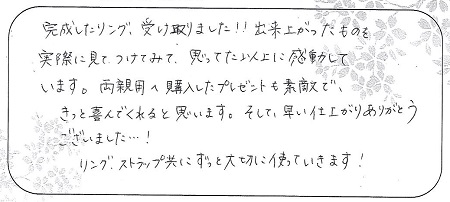 完成したリング、受け取りました!!出来上がったものを
実際に見て、つけてみて、思ってた以上に感動して
います。両親用へ購入したプレゼントも素敵で、
きっと喜んでくれると思います。そして、早い仕上がりありがとう
ございました…!
リング、ストラップ共にずっと大切に使っていきます!